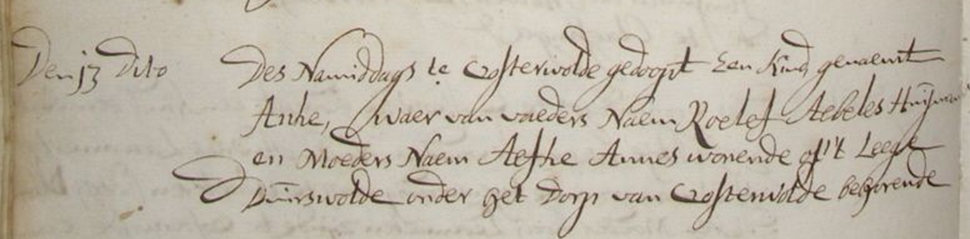 Den 13 Dito Des Namiddags te Oosterwolde gedoopt Een Kind genaemt
Anke, Waer van vaeders Naem Roelof Aebeles Huisman
en Moeders Naem Aefke Annes wonende op't Leege
Duurswolde onder het Dorp van Oosterwolde behorende